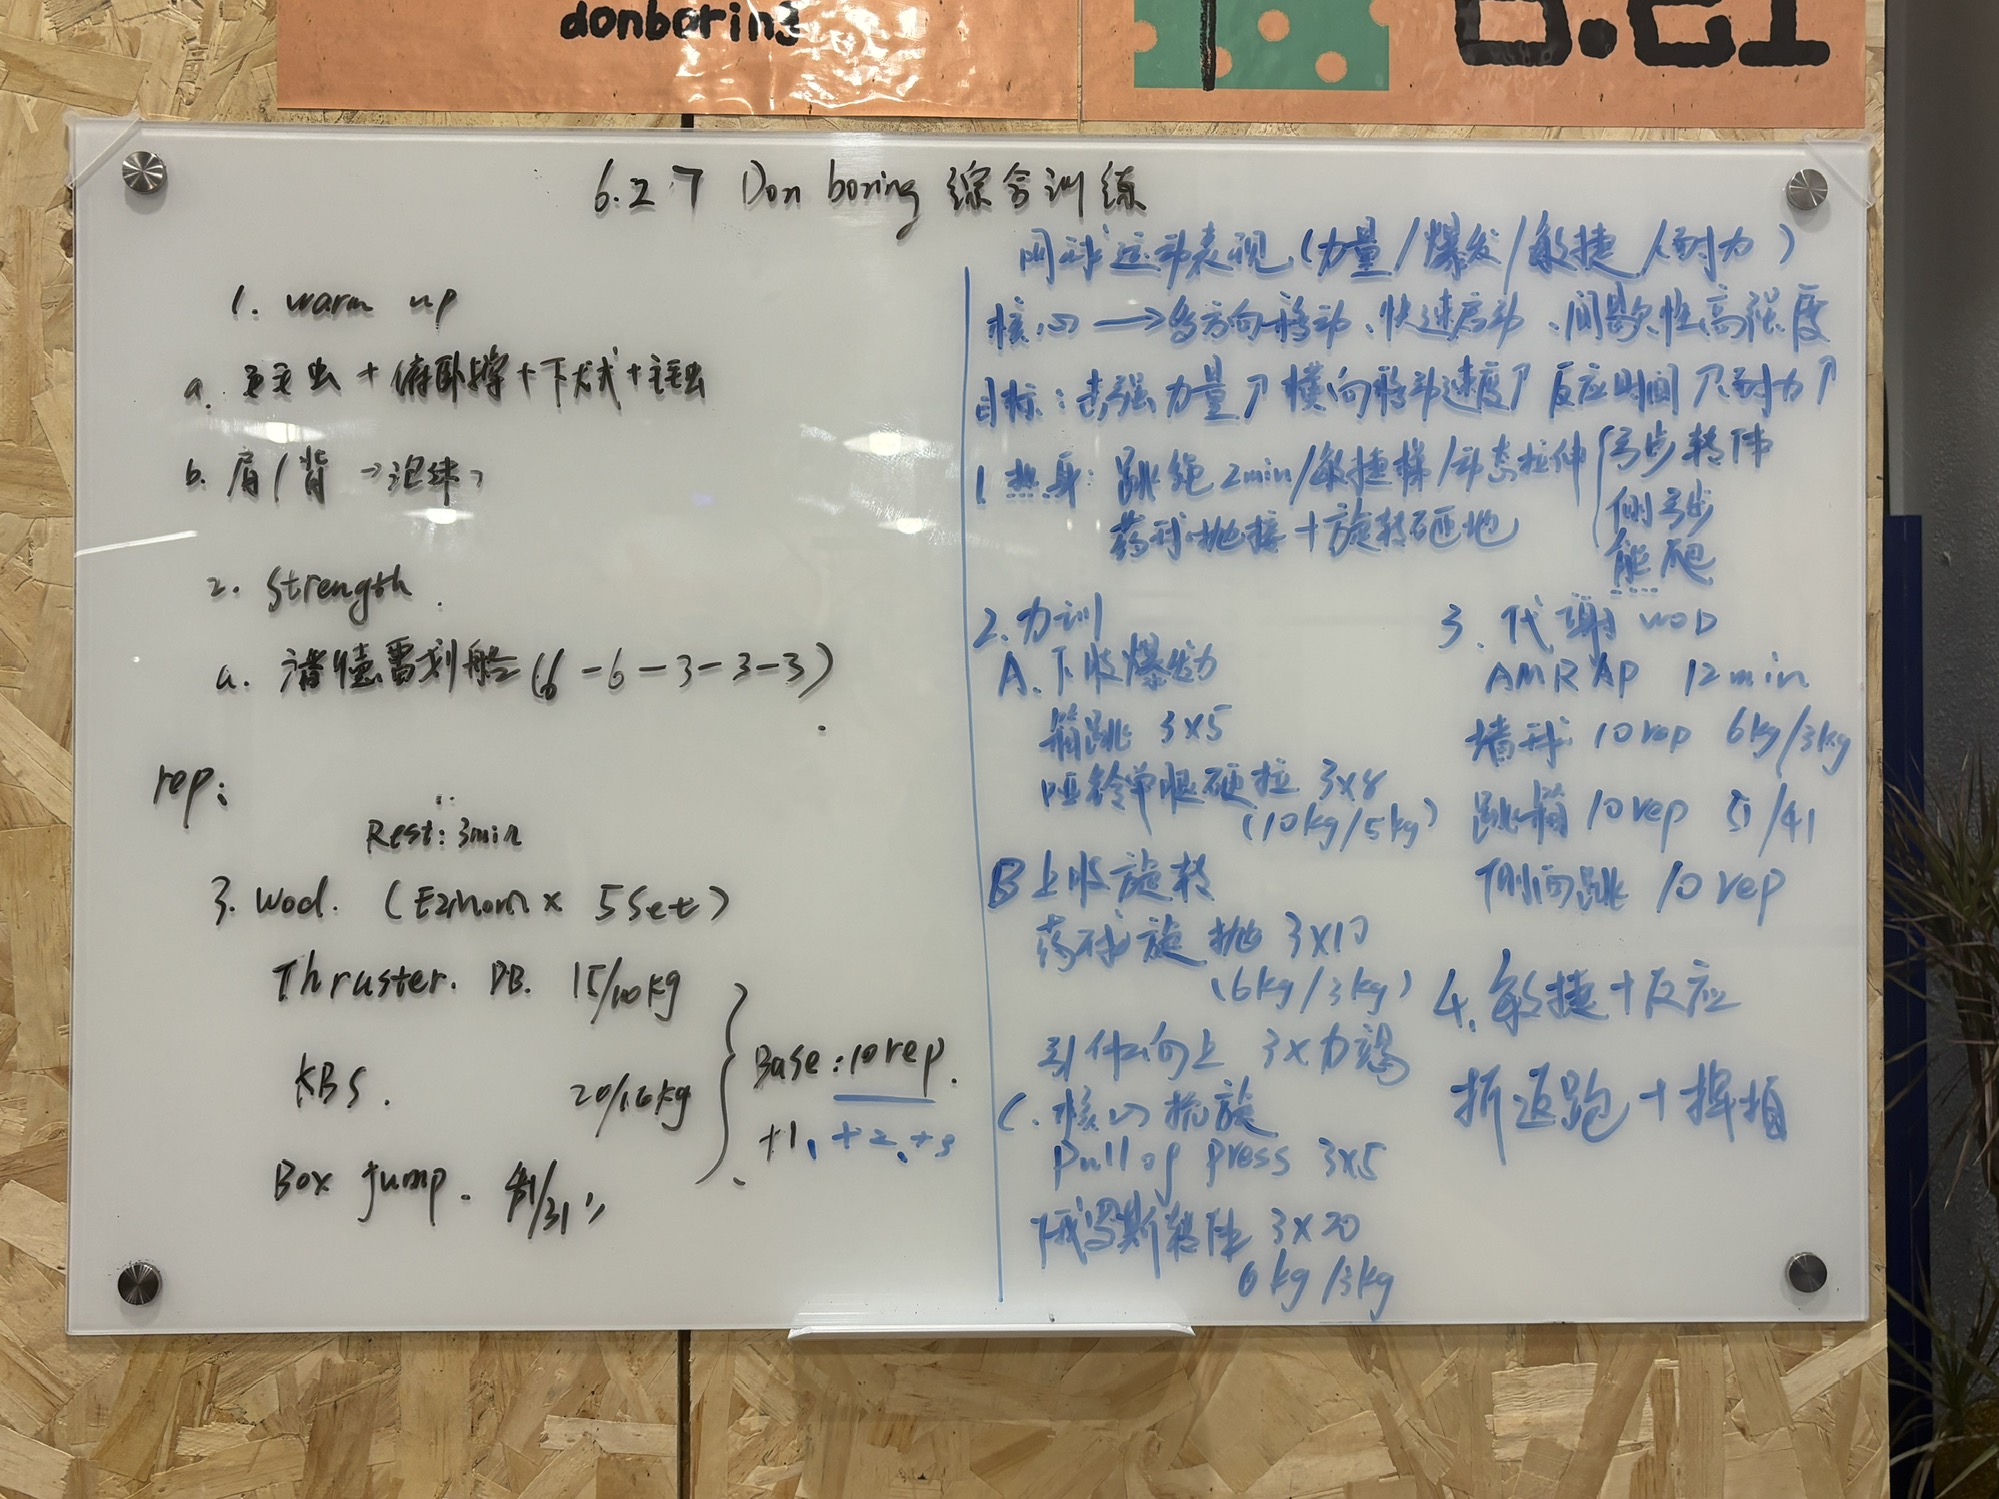 donboring
6.27 Don boring 综合训练
1. warm up
a. 毛毛虫 + 俯卧撑 + 下犬式 + 毛毛虫
b. 肩/背 → 泡沫
2. Strength
a. 潘德雷划船 (6-6-3-3-3)
rep:
Rest: 3min
3. Wod. (E2mom × 5 Set)
Thruster. DB. 15/10kg
KBS. 20/16kg
Box jump. /31"
Base: 10rep.
+1, +2, +3
网球运动表现 (力量/爆发/敏捷/耐力)
核心 → 多方向移动、快速启动、间歇性高强度
目标: 击强力量↑ 横向移动速度↑ 反应时间↑ 耐力↑
1. 热身: 跳绳 2min/敏捷梯/动态拉伸 { 弓步转体
侧弓步
熊爬
药球抛接 + 旋转砸地
2. 力训
A. 下肢爆发力
箱跳 3x5
哑铃单腿硬拉 3x8
(10kg/5kg)
B 上肢旋转
药球旋抛 3x10
(6kg/3kg)
引体向上 3x力竭
C. 核心抗旋
Pull op press 3x5
俄罗斯转体 3x20
6kg/3kg
3. 代谢 WOD
AMRAP 12min
墙球 10rep 6kg/3kg
跳箱 10rep 51/41
侧向跳 10rep
4. 敏捷+反应
折返跑+挥拍